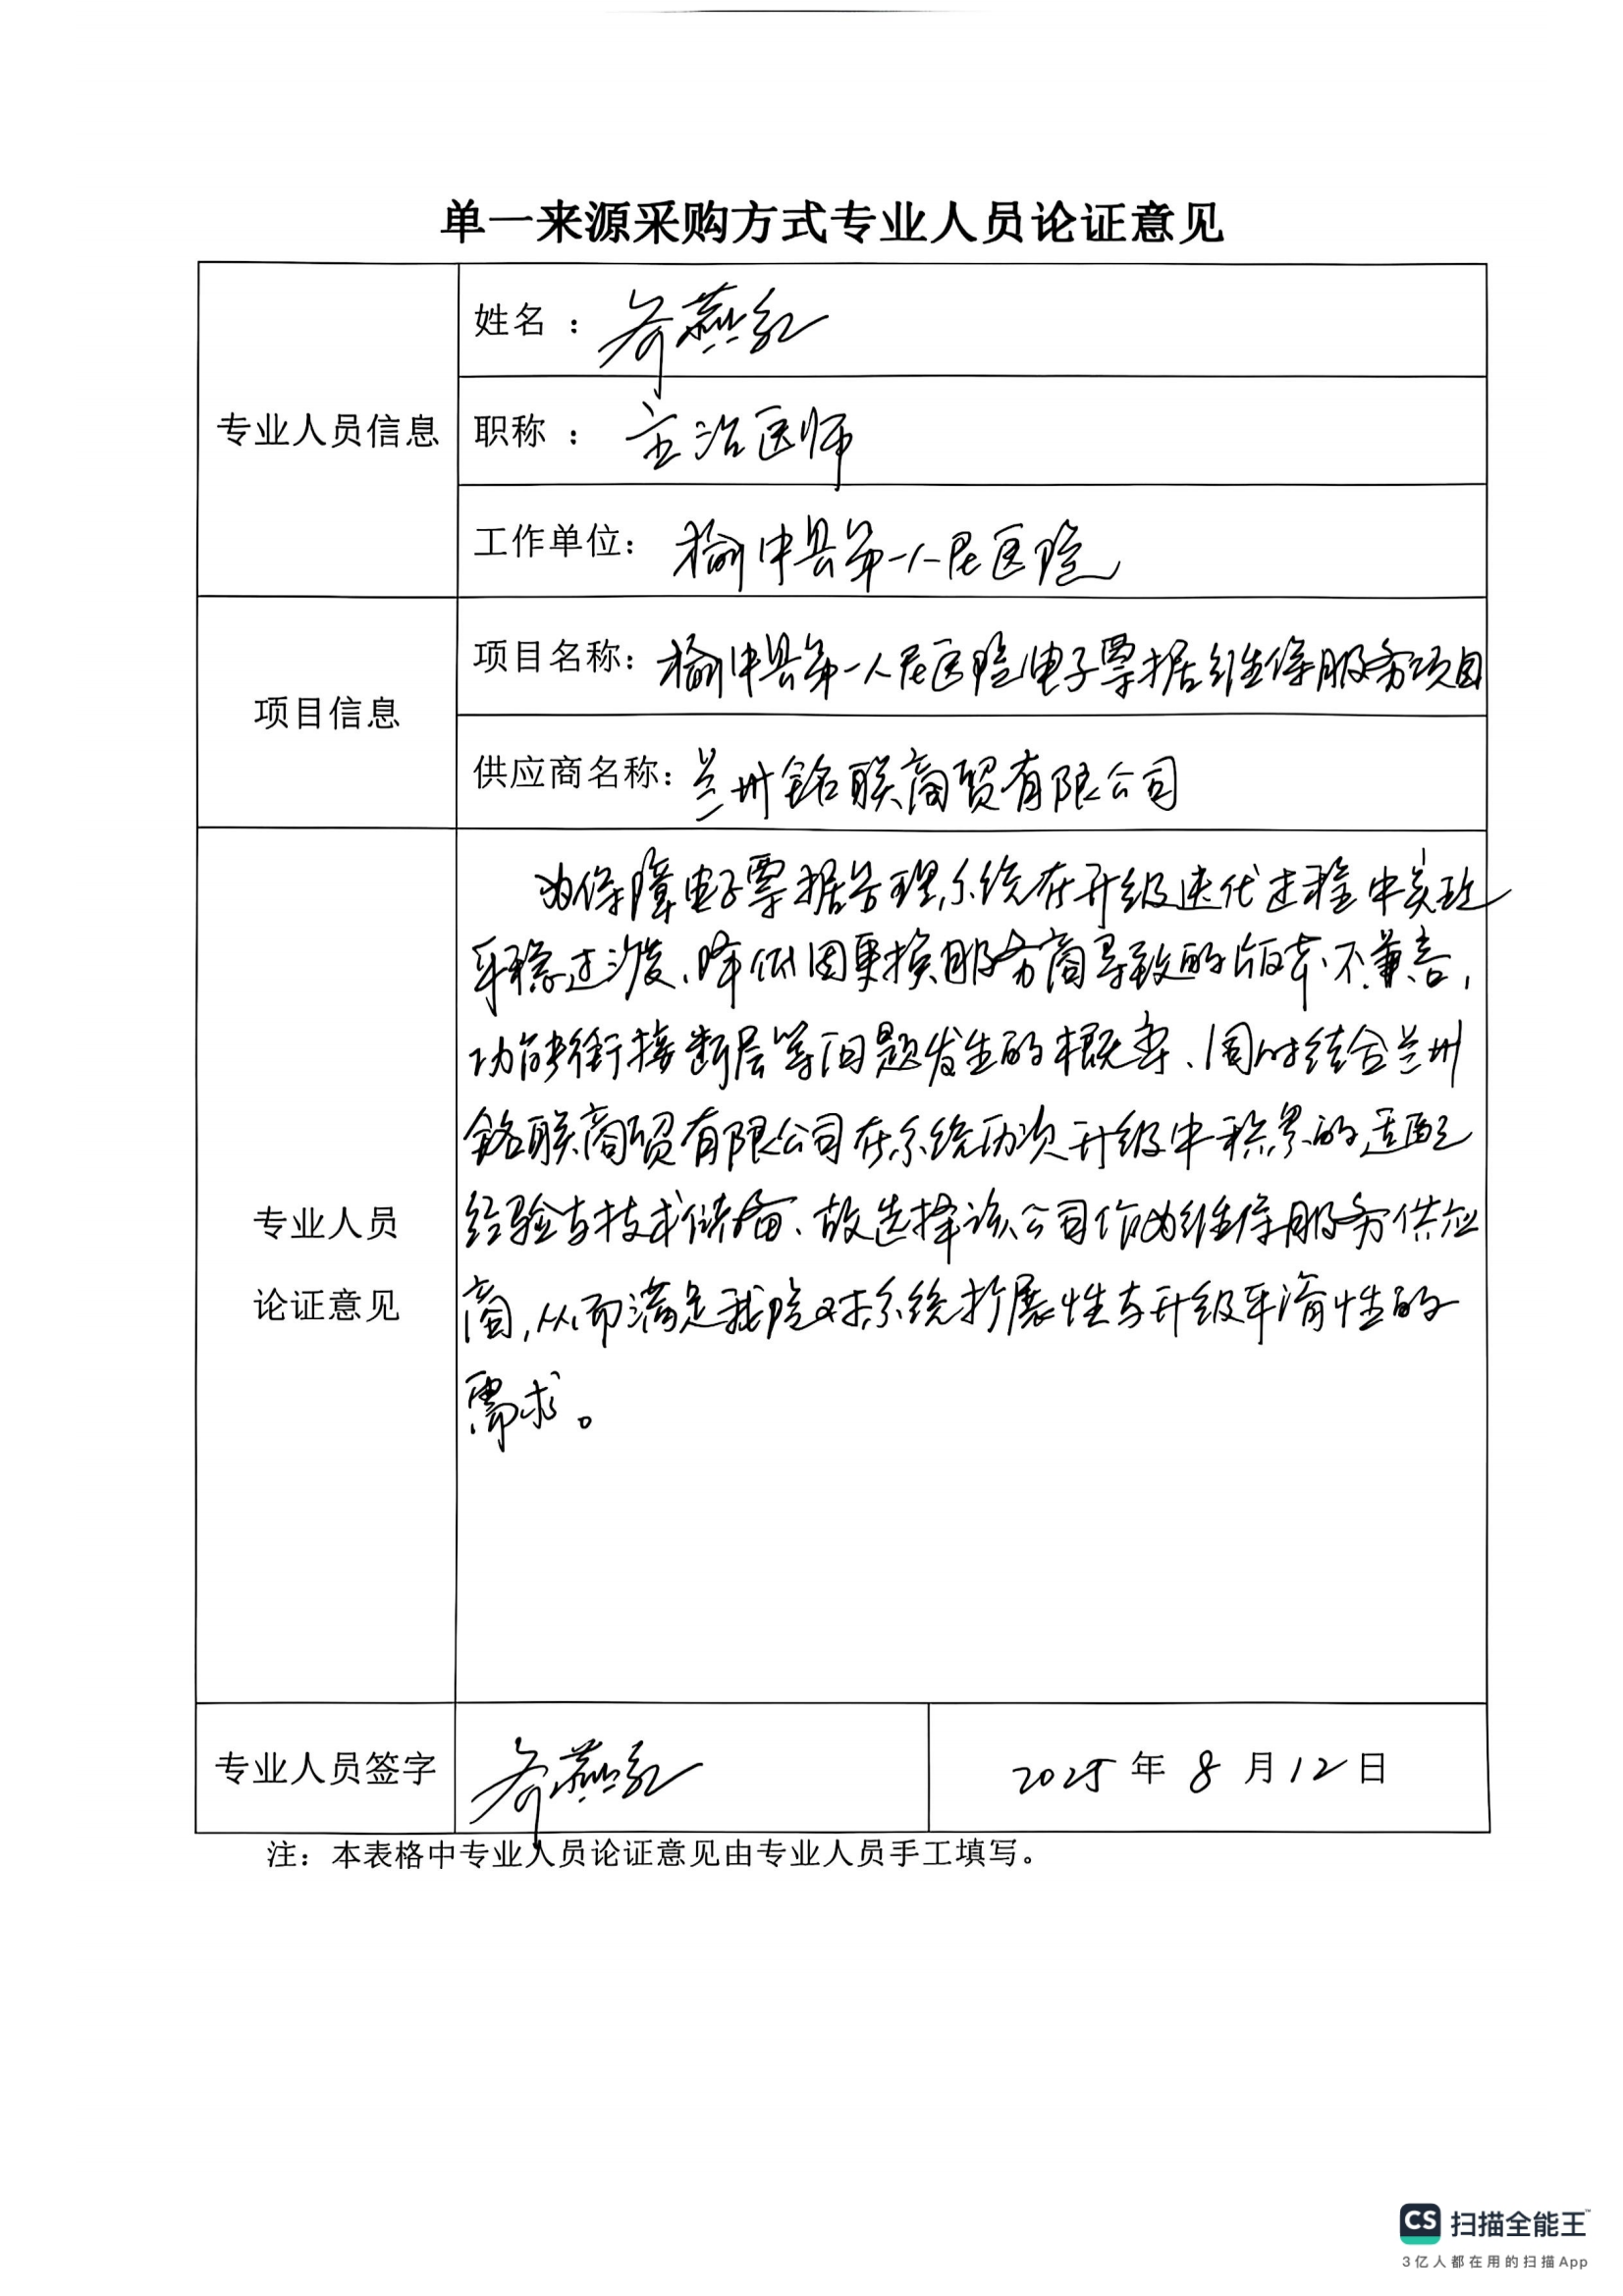 单一来源采购方式专业人员论证意见
专业人员信息
姓名 : 燕红
职称 : 主治医师
工作单位: 榆中县第一人民医院
项目信息
项目名称: 榆中县第一人民医院电子票据维保服务项目
供应商名称: 兰州铭联商贸有限公司
专业人员
论证意见
为保障电子票据管理系统在升级迭代过程中实现
平稳过渡、降低因更换服务商导致的版本不兼容,
功能衔接断层等问题发生的概率、同时结合兰州
铭联商贸有限公司在系统历次升级中积累的适配
经验与技术储备、故选择该公司作为维保服务供应
商,从而满足我院对系统扩展性与升级平滑性的
需求。
专业人员签字
燕红
2025 年 8 月 12 日
注: 本表格中专业人员论证意见由专业人员手工填写。
CS 扫描全能王™
3亿人都在用的扫描App